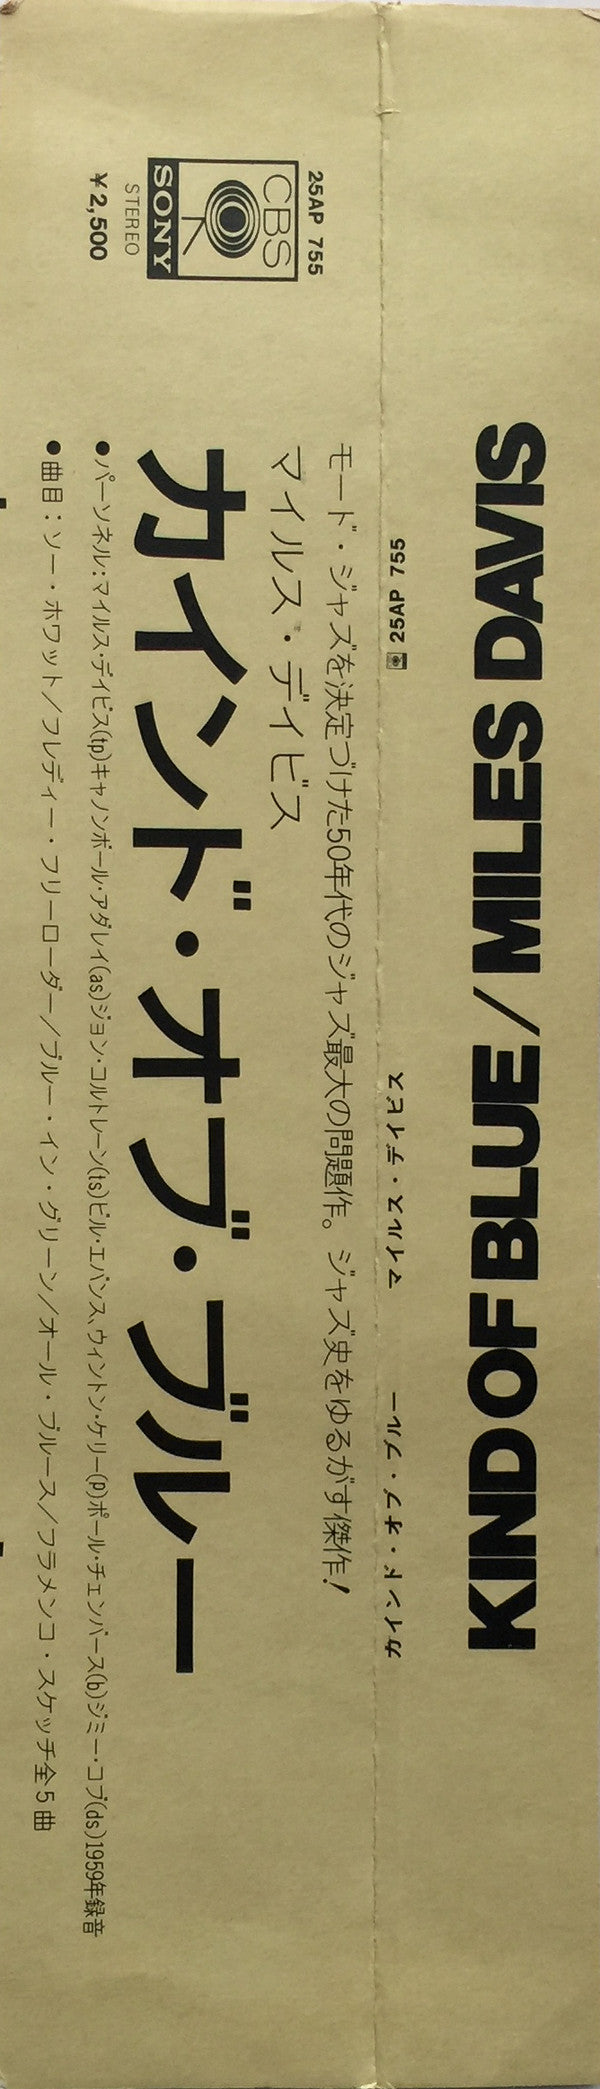 KIND OF BLUE / MILES DAVIS
カインド・オブ・ブルー マイルス・デイビス 25AP 755
25AP 755
CBS
SONY
STEREO
¥2,500
モード・ジャズを決定づけた50年代のジャズ最大の問題作。ジャズ史をゆるがす傑作!
マイルス・デイビス
カインド・オブ・ブルー
●パーソネル:マイルス・デイビス(tp)キャノンボール・アダレイ(as)ジョン・コルトレーン(ts)ビル・エバンス、ウィントン・ケリー(p)ポール・チェンバース(b)ジミー・コブ(ds)1959年録音
●曲目:ソー・ホワット/フレディー・フリーローダー/ブルー・イン・グリーン/オール・ブルース/フラメンコ・スケッチ全5曲